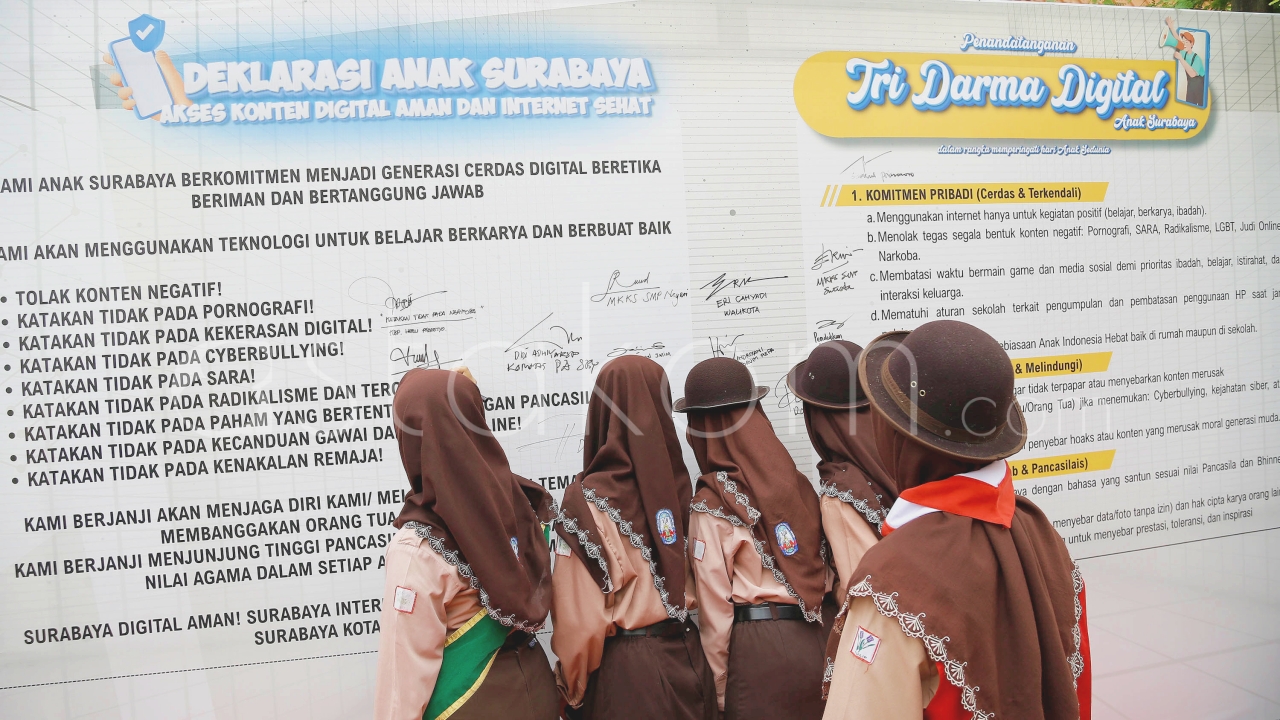 DEKLARASI ANAK SURABAYA
AKSES KONTEN DIGITAL AMAN DAN INTERNET SEHAT
AMI ANAK SURABAYA BERKOMITMEN MENJADI GENERASI CERDAS DIGITAL BERETIKA
BERIMAN DAN BERTANGGUNG JAWAB
AMI AKAN MENGGUNAKAN TEKNOLOGI UNTUK BELAJAR BERKARYA DAN BERBUAT BAIK
• TOLAK KONTEN NEGATIF!
• KATAKAN TIDAK PADA PORNOGRAFI!
• KATAKAN TIDAK PADA KEKERASAN DIGITAL!
• KATAKAN TIDAK PADA CYBERBULLYING!
• KATAKAN TIDAK PADA SARA!
• KATAKAN TIDAK PADA RADIKALISME DAN TERO
• KATAKAN TIDAK PADA PAHAM YANG BERTENT GAN PANCASIL
• KATAKAN TIDAK PADA KECANDUAN GAWAI DA LINE!
• KATAKAN TIDAK PADA KENAKALAN REMAJA!
KAMI BERJANJI AKAN MENJAGA DIRI KAMI/ MEL TEMA
MEMBANGGAKAN ORANG TUA
KAMI BERJANJI MENJUNJUNG TINGGI PANCASI
NILAI AGAMA DALAM SETIAP A
SURABAYA DIGITAL AMAN! SURABAYA INTER
SURABAYA KOTA
MKKS SMP Negeri
ERI CAHYADI
WALIKOTA
Penandatanganan
Tri Darma Digital
Anak Surabaya
dalam rangka memperingati hari Anak Sedunia
1. KOMITMEN PRIBADI (Cerdas & Terkendali)
a. Menggunakan internet hanya untuk kegiatan positif (belajar, berkarya, ibadah).
b. Menolak tegas segala bentuk konten negatif: Pornografi, SARA, Radikalisme, LGBT, Judi Online
Narkoba.
c. Membatasi waktu bermain game dan media sosial demi prioritas ibadah, belajar, istirahat, da
interaksi keluarga.
d. Mematuhi aturan sekolah terkait pengumpulan dan pembatasan penggunaan HP saat jan
ebiasaan Anak Indonesia Hebat baik di rumah maupun di sekolah.
& Melindungi)
gar tidak terpapar atau menyebarkan konten merusak
u/Orang Tua) jika menemukan: Cyberbullying, kejahatan siber, a
penyebar hoaks atau konten yang merusak moral generasi muda
b & Pancasilais)
ya dengan bahasa yang santun sesuai nilai Pancasila dan Bhinne
menyebar data/foto tanpa izin) dan hak cipta karya orang la
untuk menyebar prestasi, toleransi, dan inspirasi